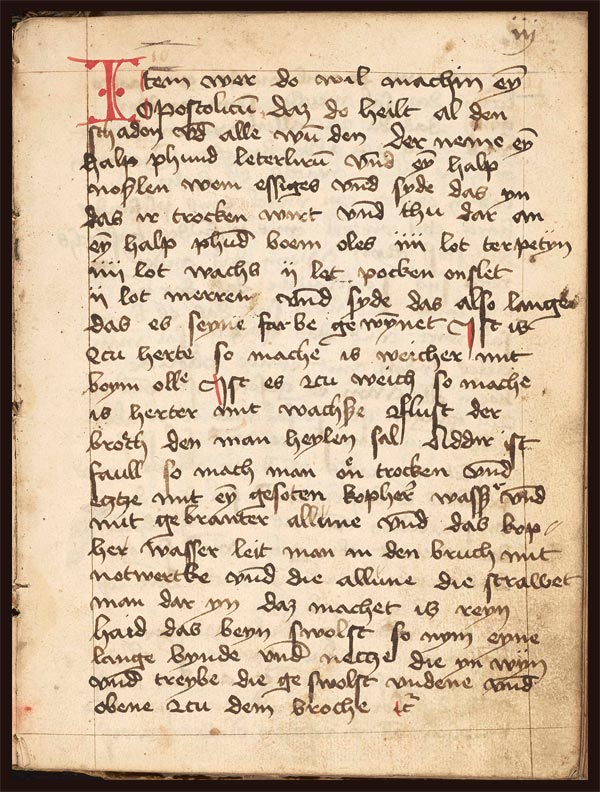 iij
Item wer do wil machin eȳ
Opostolicū daz do heilt al den
schadon vd̄ alle wū den Der neme eȳ
halp phund leterlurū vnd̄ eȳ halp
noslen wem essiges vnd̄ syde das yn
das ir trocken wirt vnd̄ thu dar an
eȳ halp phud̄ boem oles iiii lot terpetijn
iiii lot wachs ij lot pocken onslet
ij lot merren vnd̄ syde das also lange
das es seyne farbe gewȳnet Ist is
zcu herte so mache is weicher mit
boym olle Ist es zcu weich so mache
is herter mit wachsze flust der
broch den man heylen sal Addir ist
faull so mach man on trocken vnd̄
etze mit eȳ gesoten kopher wasser vnd̄
mit gebranter allune vnd̄ das kop
her wasser leit man in den bruch mit
notwertke vnd̄ die allune die strawet
man dar yn daz machet is reyn
haid das beyn swolst so nym eyne
lange bynde vnd̄ necze die yn wijn
vnd̄ treybe die geswolst vndene vnd̄
obene zcu dem broche